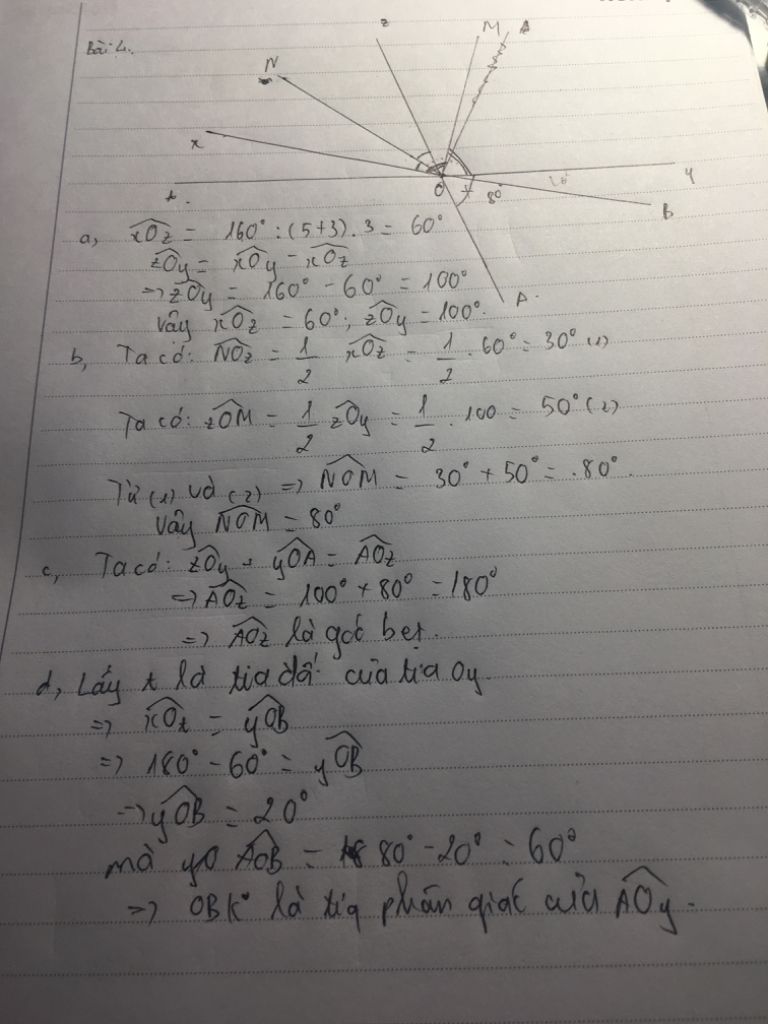 Bài 4.
z
M
A
N
x
t
O
y
80°
20°
B
A
a, xOz = 160° : (5+3) . 3 = 60°
zOy = xOy - xOz
=> zOy = 160° - 60° = 100°
Vậy xOz = 60°; zOy = 100°.
b, Ta có: NOz = 1/2 xOz = 1/2 . 60° = 30° (1)
Ta có: zOM = 1/2 zOy = 1/2 . 100 = 50° (2)
Từ (1) và (2) => NOM = 30° + 50° = 80°.
Vậy NOM = 80°
c, Ta có: zOy + yOA = AOz
=> AOz = 100° + 80° = 180°
=> AOz là góc bẹt.
d, Lấy t là tia đối của tia Oy.
=> xOt = yOB
=> 180° - 60° = yOB
=> yOB = 20°
mà AOB = 80° - 20° = 60°
=> OB K° là tia phân giác của AOy.